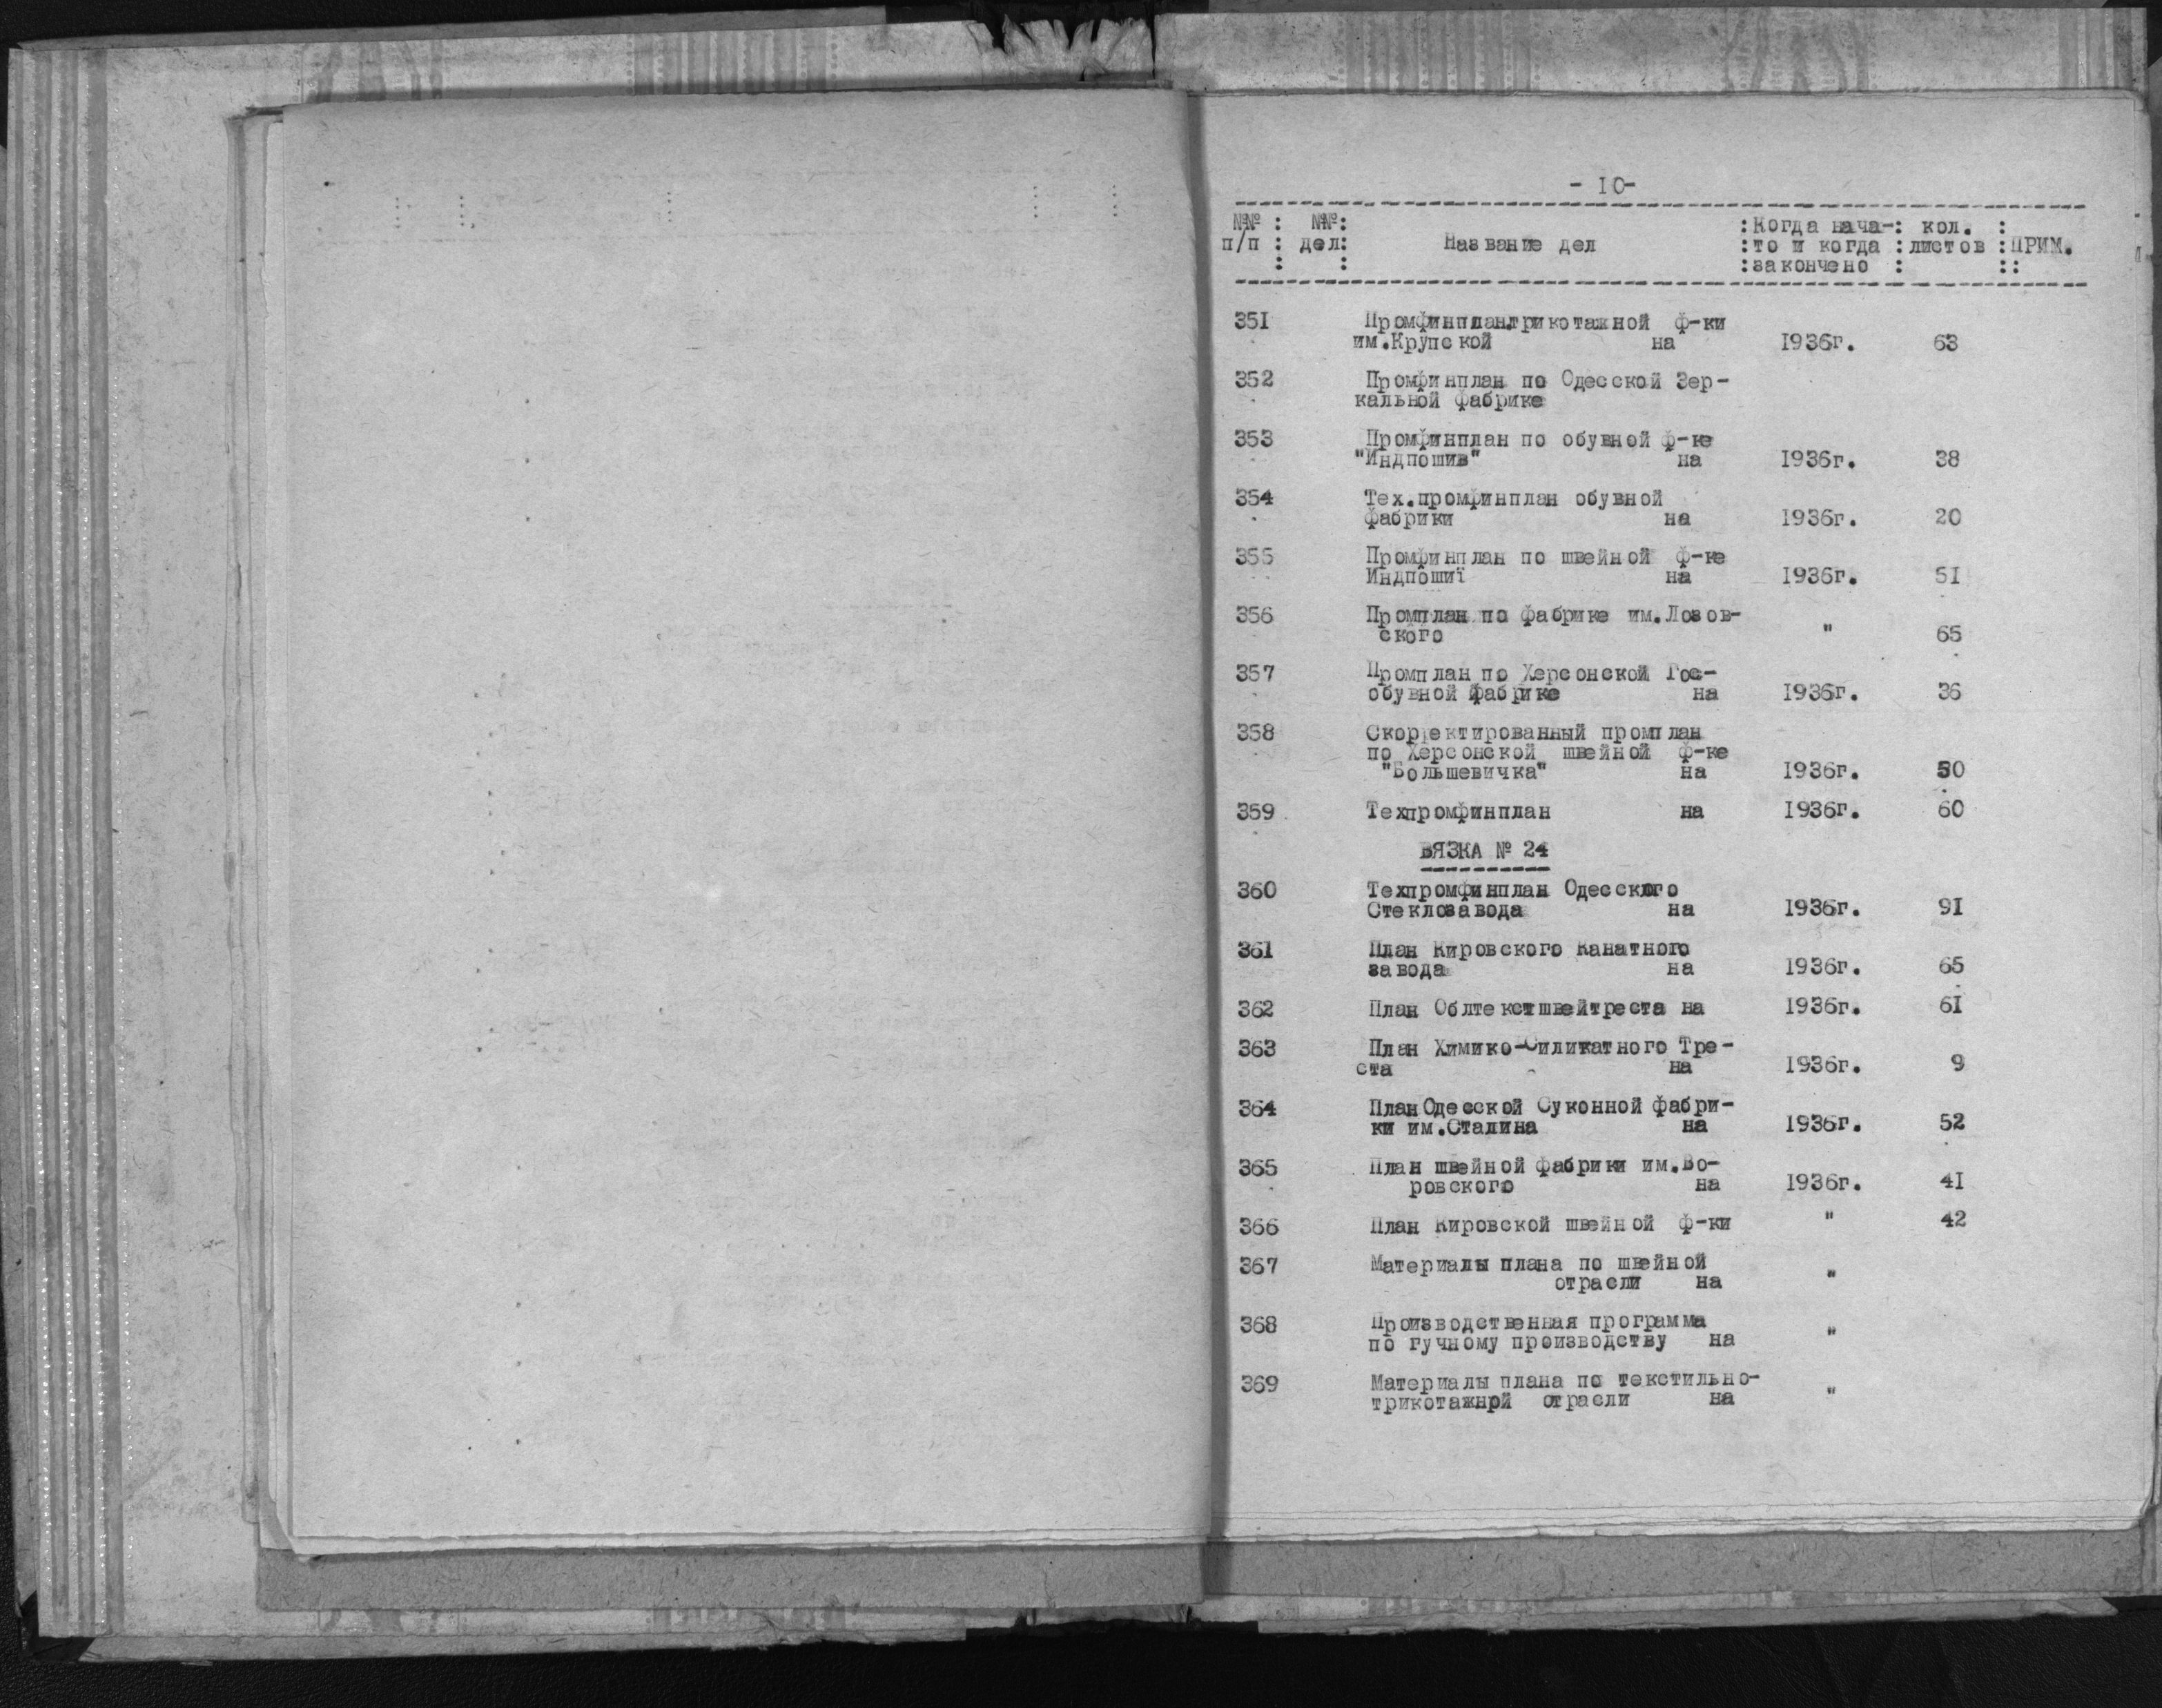 - 10-
№№ : №№: :Когда нача-: кол. :
п/п : дел: Название дел :то и когда :листов :ПРИМ.
: : :закончено : ::
351 Промфинплан трикотажной ф-ки
им.Крупской на 1936г. 63
352 Промфинплан по Одесской Зер-
кальной фабрике
353 Промфинплан по обувной ф-ке
"Индпошив" на 1936г. 38
354 Тех.промфинплан обувной
фабрики на 1936г. 20
355 Промфинплан по швейной ф-ке
Индпошиї на 1936г. 51
356 Промплан по фабрике им.Лозов-
ского " 65
357 Промплан по Херсонской Гос-
обувной фабрике на 1936г. 36
358 Скорректированный промплан
по Херсонской швейной ф-ке
"Большевичка" на 1936г. 50
359 Техпромфинплан на 1936г. 60
ВЯЗКА № 24
360 Техпромфинплан Одесского
Стеклозавода на 1936г. 91
361 План Кировского Канатного
завода на 1936г. 65
362 План Облтекстшвейтреста на 1936г. 61
363 План Химико-Силикатного Тре-
ста на 1936г. 9
364 План Одесской Суконной фабри-
ки им.Сталина на 1936г. 52
365 План швейной фабрики им.Во-
ровского на 1936г. 41
366 План Кировской швейной ф-ки " 42
367 Материалы плана по швейной
отрасли на "
368 Производственная программа
по гучному производству на "
369 Материалы плана по текстильно-
трикотажнрй отрасли на "